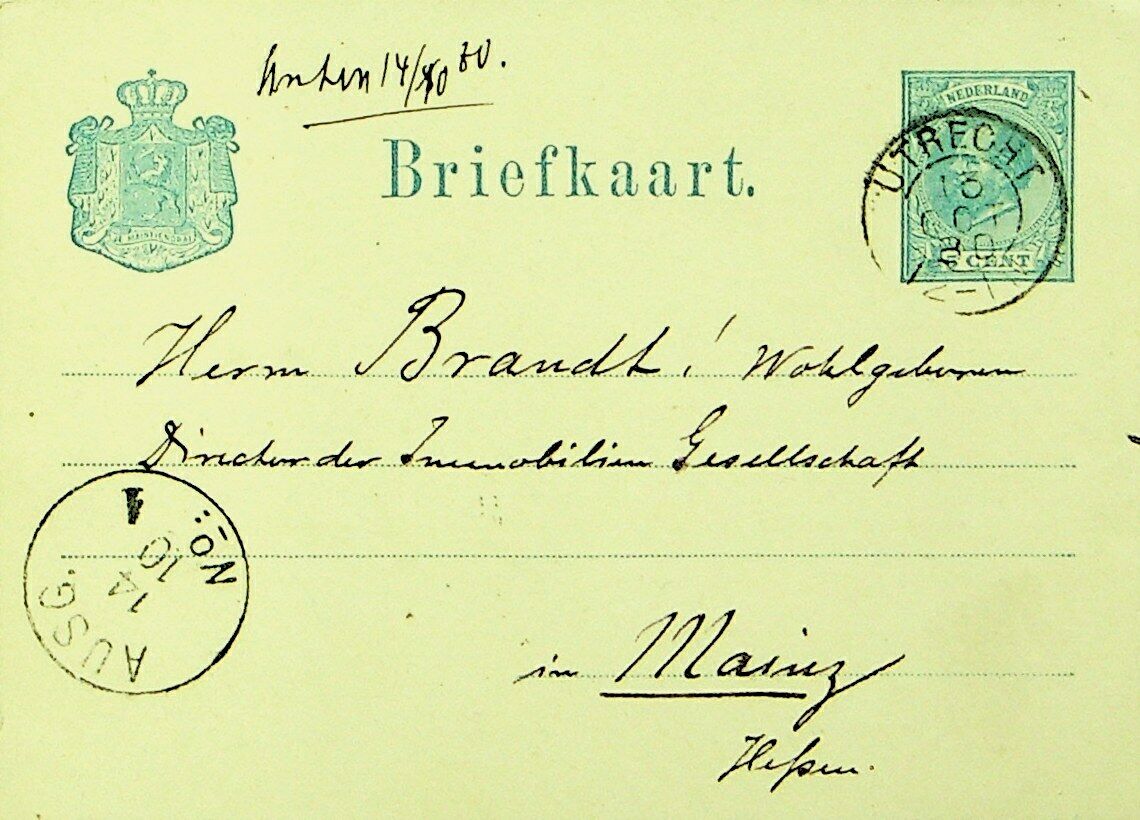 14/10 80.
Briefkaart.
NEDERLAND
UTRECHT
5 CENT
JE MAINTIENDRAI
Herrn Brandt! Wohlgeboren
Director der Immobilien Gesellschaft
No: 1
14
10
AUSG.
in Mainz
Heßen.